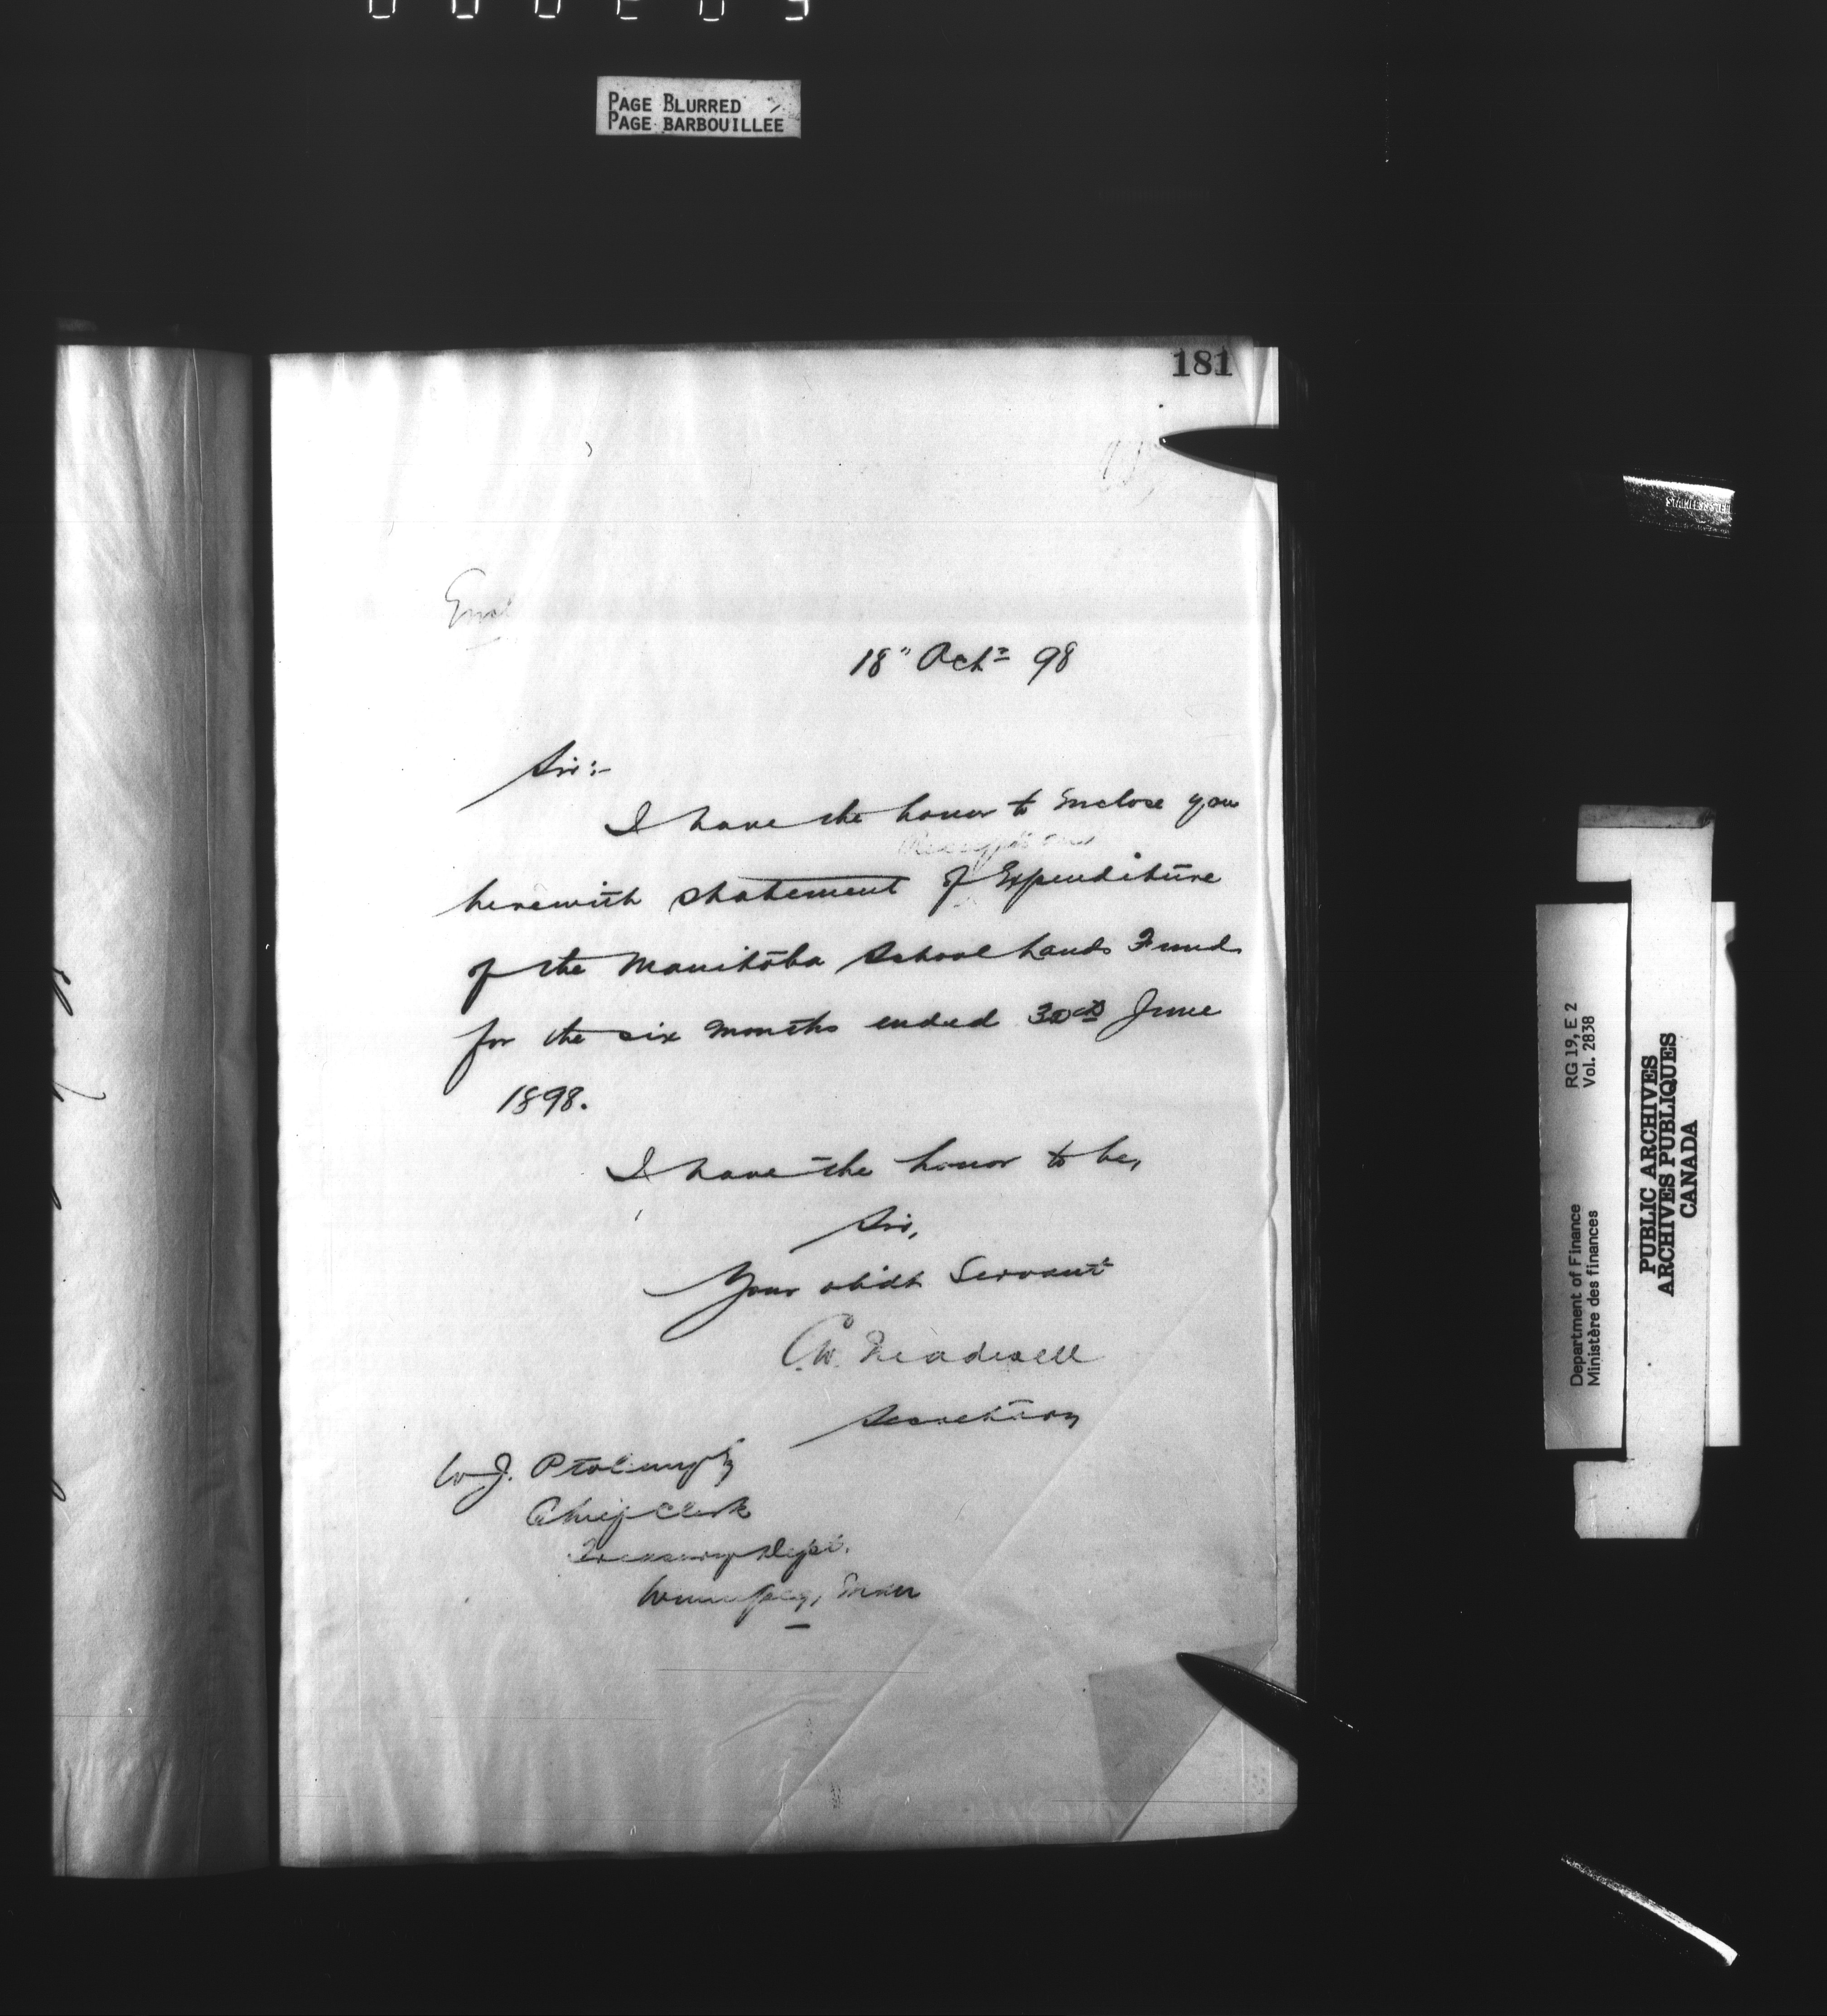 PAGE BLURRED
PAGE BARBOUILLÉE
181
18" Octr 98
Sir:-
I have the honor to Enclose you
Receipts and
herewith statement of Expenditure
of the Manitoba School Lands Fund
for the six months ended 30th June
1898.
I have the honor to be,
Sir,
Your obdt Servant
C.W. Treadwell
Secretary
W J. Ptolemy
Chief Clerk
Treasury Dept.
Winnipeg, Man
RG 19, E 2
Vol. 2838
Department of Finance
Ministère des finances
PUBLIC ARCHIVES
ARCHIVES PUBLIQUES
CANADA